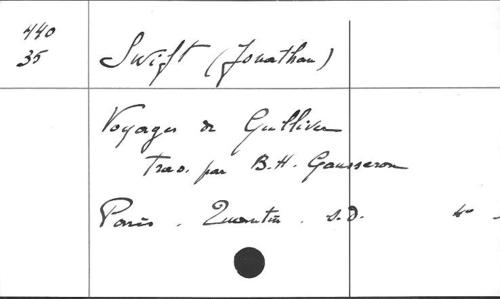 440
35
Swift (Jonathan)
Voyages de Gulliver
Trad. par B.H. Gausseron
Paris. Quantin. s.d. 4°